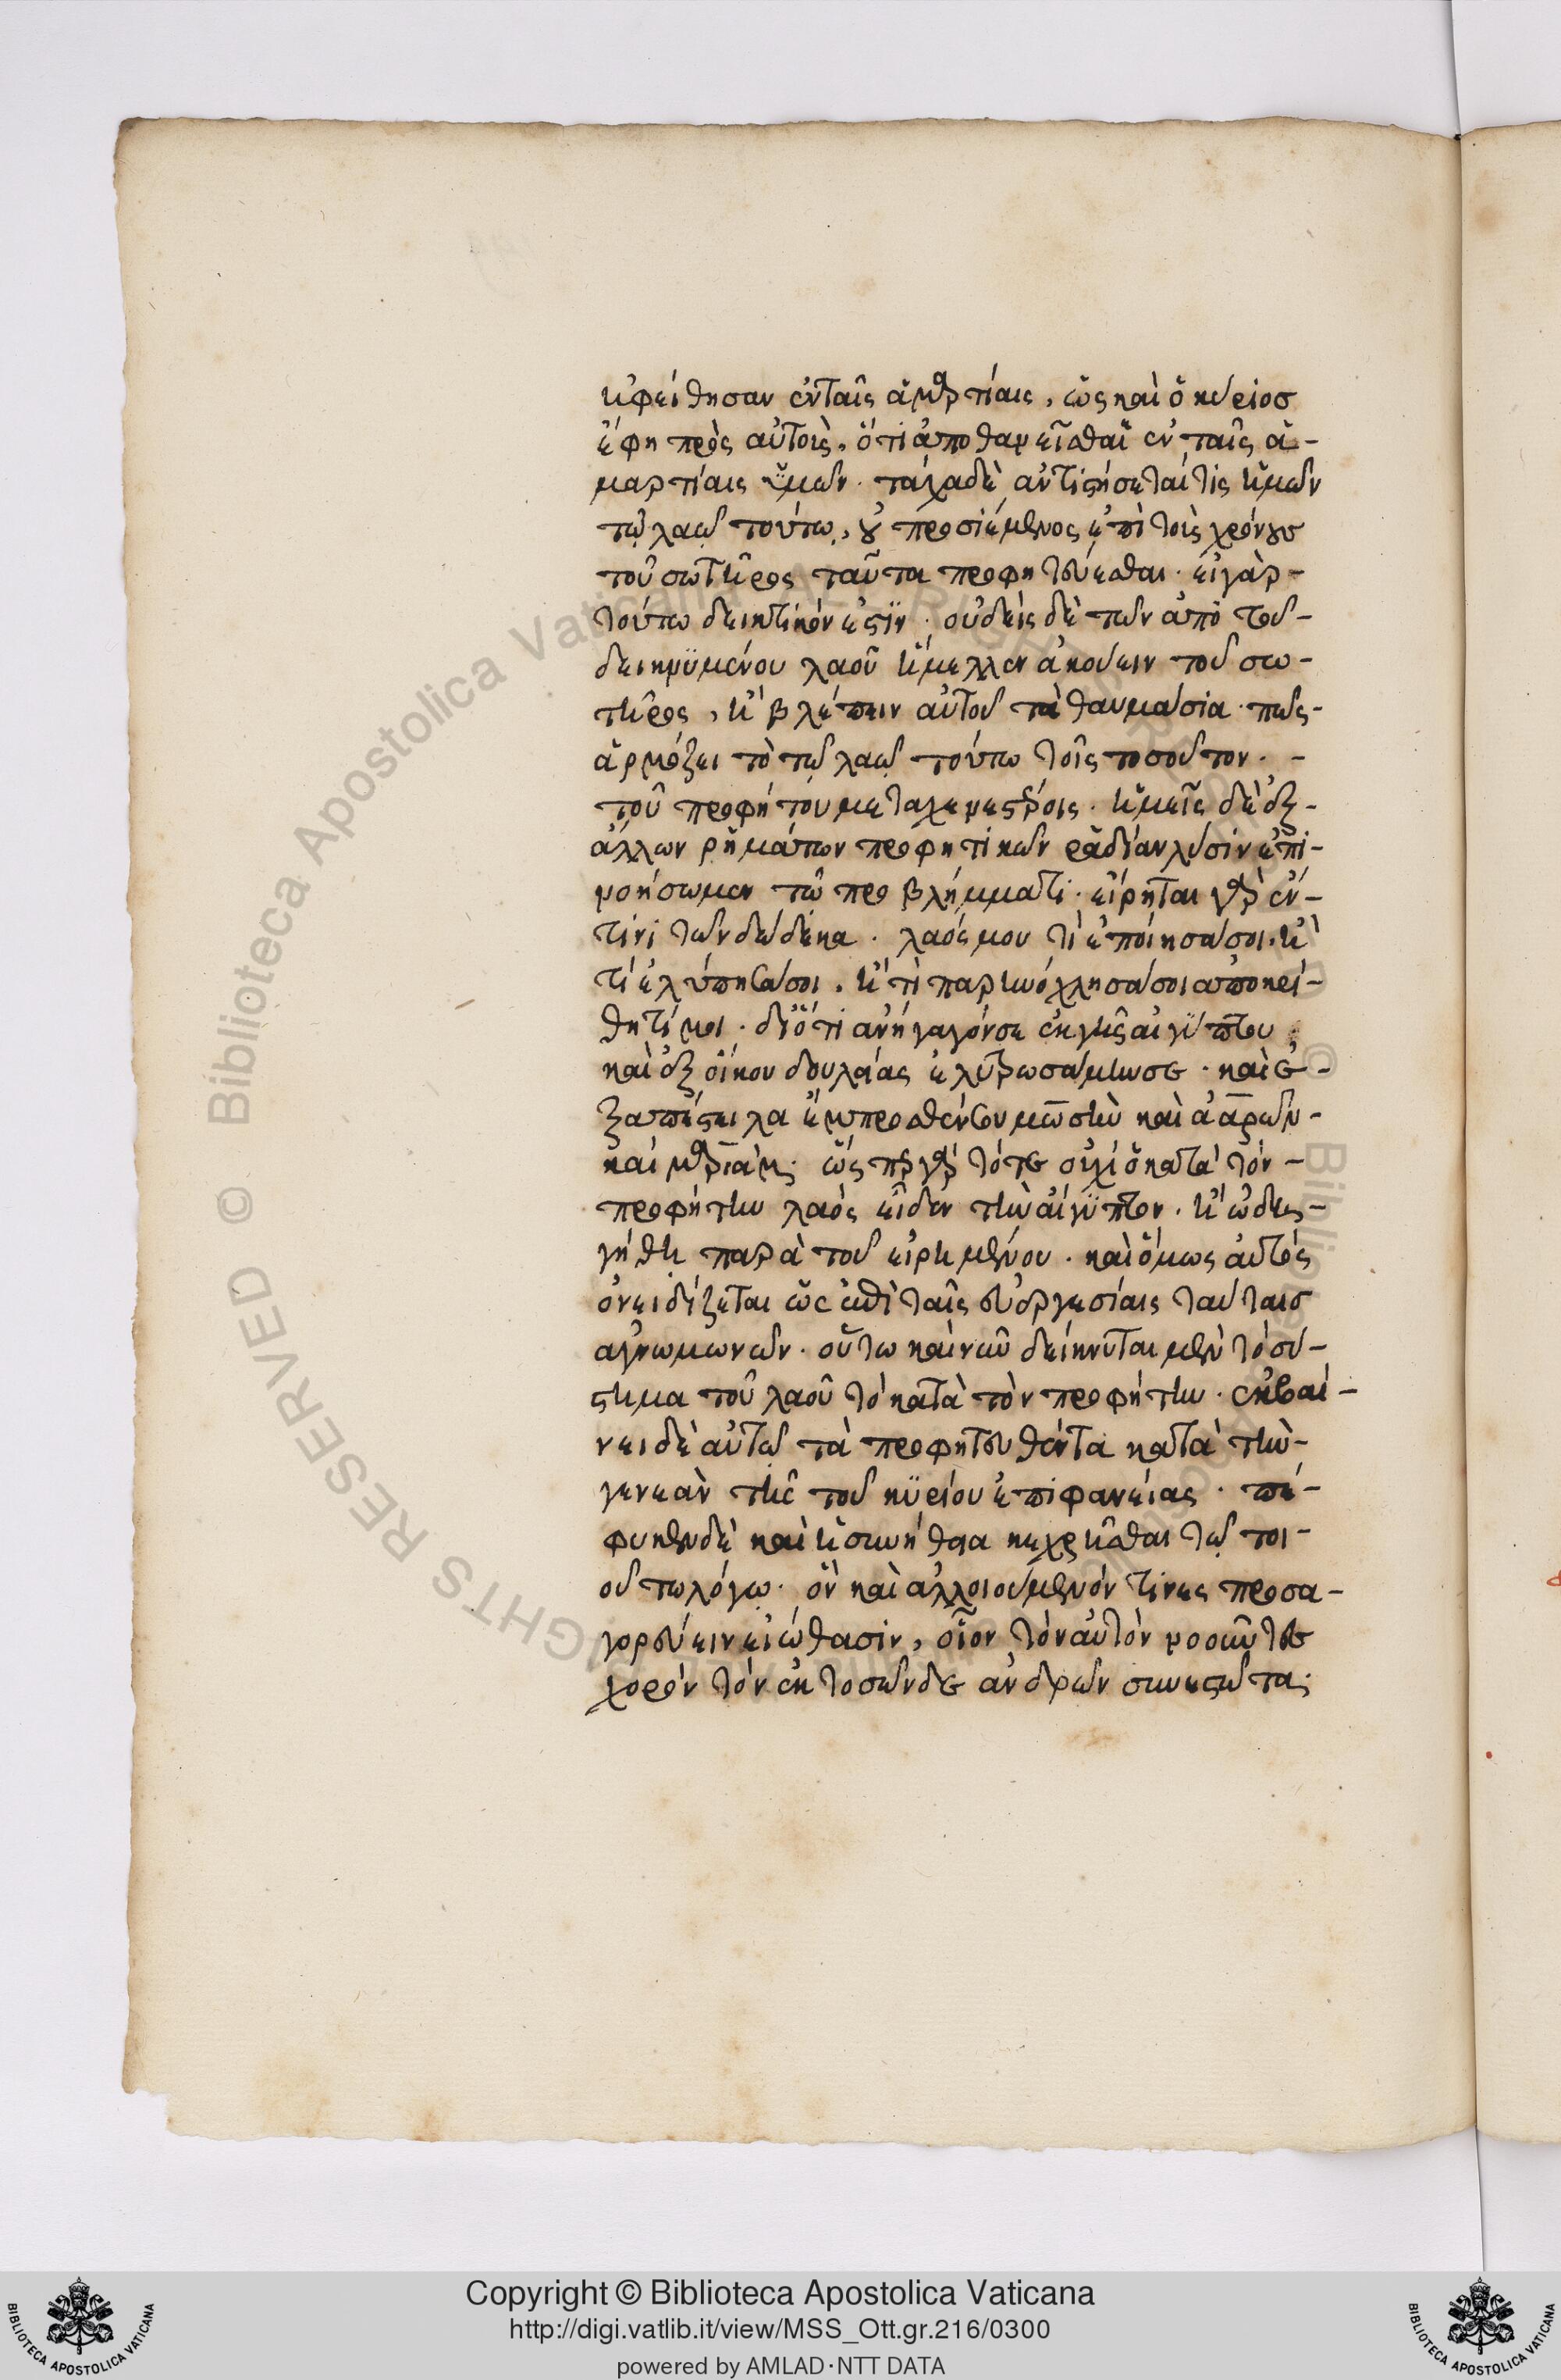 ἠφείθησαν ἐν ταῖς ἁμαρτίαις, ὡς καὶ ὁ κύριος
ἔφη πρὸς αὐτοὺς, ὅτι ἀποθανεῖσθαι ἐν ταῖς ἁ-
μαρτίαις ὑμῶν· τάχα δὲ ἀντιστήσεταί τις ἡμῶν
τῷ λαῷ τούτῳ, οὐ προσιέμενος ἐπὶ τοῖς χρόνοις
τοῦ σωτῆρος ταῦτα προφητεύεσθαι· εἰ γὰρ-
τούτω δεικτικόν ἐστιν· οὐδεὶς δὲ τῶν ἀπὸ τοῦ-
δεικνυμένου λαοῦ ἤμελλεν ἀκούειν τοῦ σω-
τῆρος, ἢ βλέπειν αὐτοῦ τὰ θαυμάσια· πῶς-
ἁρμόζει τὸ τῷ λαῷ τούτω τοῖς τοσοῦτον·-
τοῦ προφήτου μεταγενεστέροις· ἡμεῖς δὲ ἐξ-
ἄλλων ῥημάτων προφητικῶν ῥᾳδίαν λύσιν ἐπι-
νοήσωμεν τῶ προβλήμματι· εἴρηται γὰρ ἐν-
τινι τῶν δώδεκα· λαός μου τί ἐποίησά σοι· ἢ
τί ἐλύπησά σοι, ἢ τί παρηνόχλησά σοι ἀποκρί-
θητί μοι· διότι ἀνήγαγόν σε ἐκ γῆς αἰγύπτου
καὶ ἐξ οἴκου δουλείας ἐλυτρωσάμην σε· καὶ ἐ-
ξαπέστειλα ἔμπροσθέν σου μωσῆν καὶ ἀαρὼν-
καὶ μαριάμ· ὥσπερ γὰρ τότε οὐχὶ ὁ κατὰ τὸν-
προφήτην λαὸς εἶδεν τὴν αἴγυπτον· ἢ ὡδη-
γήθη παρὰ τοῦ εἰρημένου· καὶ ὅμως αὐτὸς
ὀνειδίζεται ὡς ἐπὶ ταῖς εὐεργεσίαις ταύταις
ἀγνωμωνῶν· οὕτω καὶ νῦν δείκνυται μὲν τὸ σύ-
στημα τοῦ λαοῦ τὸ κατὰ τὸν προφήτην· ἐκβαί-
νει δὲ αὐτῷ τὰ προφητευθέντα κατὰ τὴν-
γενεὰν τῆς τοῦ κυρίου ἐπιφανείας· πέ-
φυκεν δὲ καὶ ἡ συνήθεια κεχρῆσθαι τῷ τοι-
ούτω λόγῳ· ὃν καὶ ἀλλοιούμενόν τινες προσα-
γορεύειν εἰώθασιν, οἷον τὸν αὐτὸν νοοῦντες
χορὸν τὸν ἐκ τοσῶνδε ἀνδρῶν συνεστῶτα·
Copyright © Biblioteca Apostolica Vaticana
http://digi.vatlib.it/view/MSS_Ott.gr.216/0300
powered by AMLAD·NTT DATA